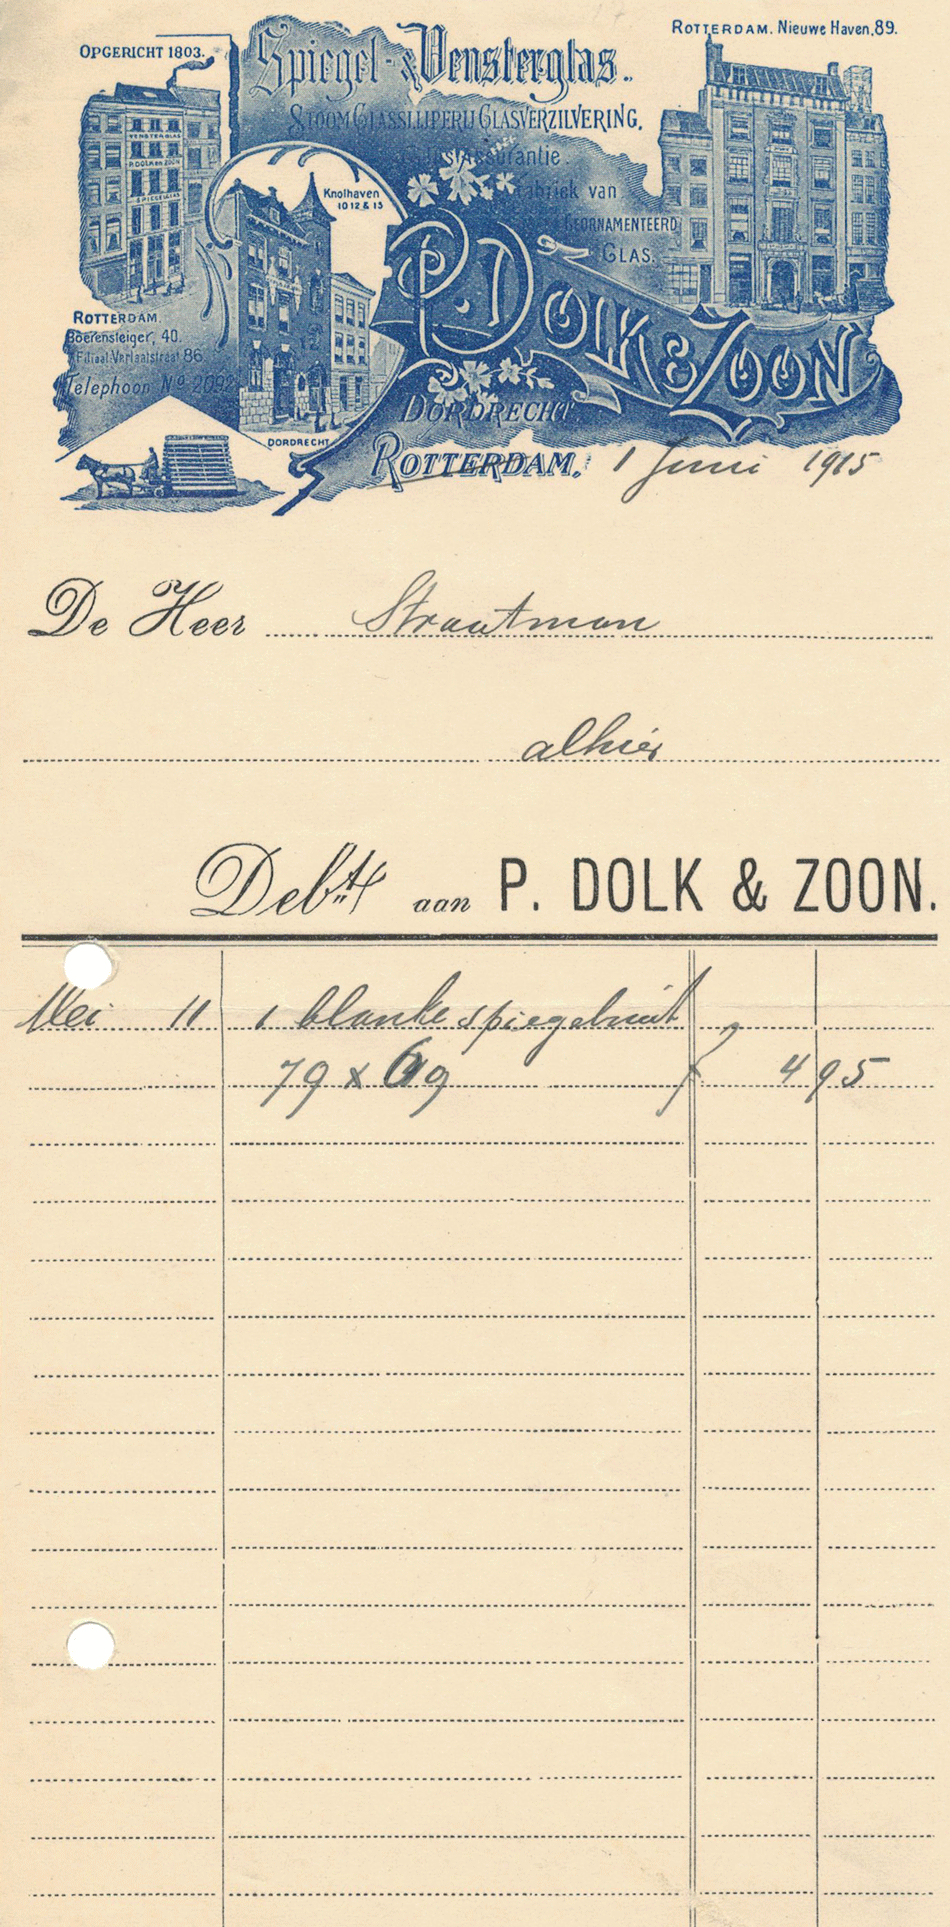 OPGERICHT 1803.
Spiegel- & Vensterglas.
ROTTERDAM. Nieuwe Haven, 89.
STOOMGLASSLIJPERIJ GLASVERZILVERING,
Glas-Assurantie.
Fabriek van
GEORNAMENTEERD
GLAS.
VENSTERGLAS
P. DOLK EN ZOON
SPIEGELGLAS
Knolhaven
10 12 & 13
P. DOLK & ZOON
ROTTERDAM.
Boerensteiger, 40.
Filiaal Verlaatstraat 86
Telephoon No. 2092
DORDRECHT
DORDRECHT
ROTTERDAM, 1 Juni 1915
De Heer Straatman
alhier
Debt. aan P. DOLK & ZOON.
Mei 11 1 blanke spiegelruit
79 x 69 f 4 95